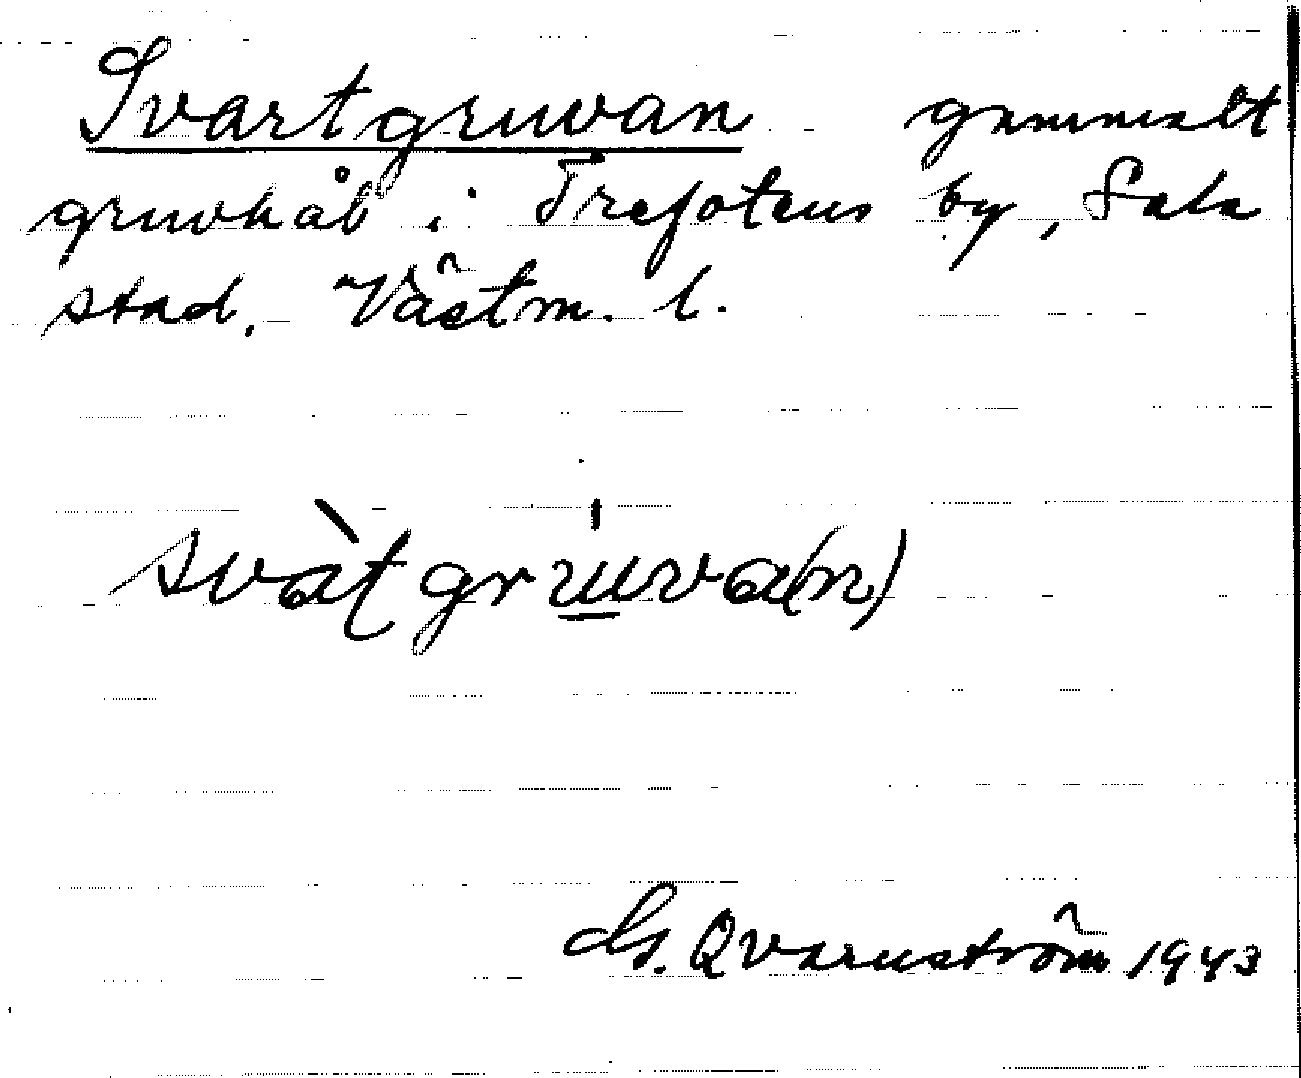 Svartgruvan gammalt
gruvhål i Trefotens by, Sala
stad. Västm. l.
svàt gruva(n)
G. Qvarnström 1943